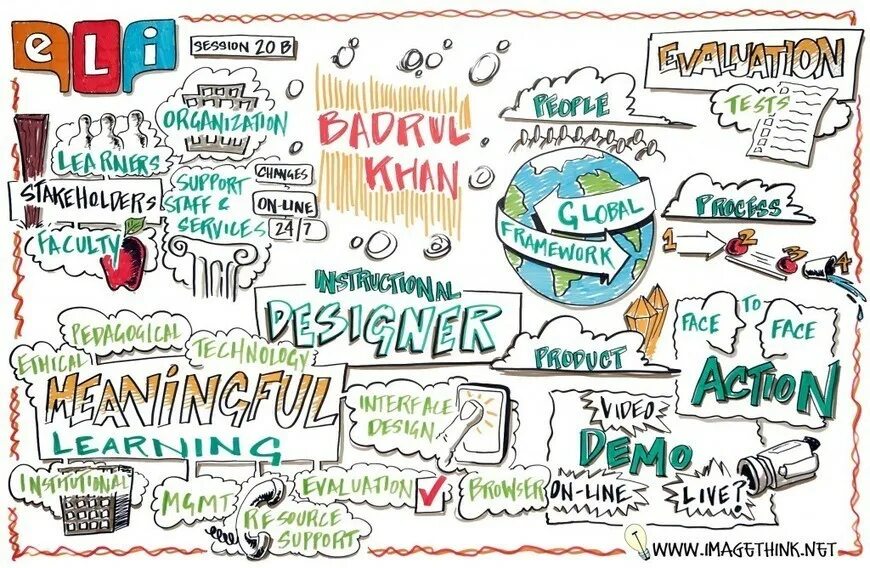 eLi
SESSION 20 B
LEARNERS
STAKEHOLDERS
FACULTY
ORGANIZATION
SUPPORT
STAFF &
SERVICES
CHANGES
ON-LINE
24/7
BADRUL
KHAN
PEOPLE
GLOBAL
FRAMEWORK
EVALUATION
TESTS
PROCESS
1
2
3
4
INSTRUCTIONAL
DESIGNER
PRODUCT
FACE TO FACE
ACTION
PEDAGOGICAL
ETHICAL
TECHNOLOGY
MEANiNGFUL
LEARNING
INTERFACE
DESIGN
INSTITUTIONAL
MGMT
RESOURCE
SUPPORT
EVALUATION
BROWSER
VIDEO
DEMO
ON-LINE
LIVE?
WWW.IMAGETHINK.NET